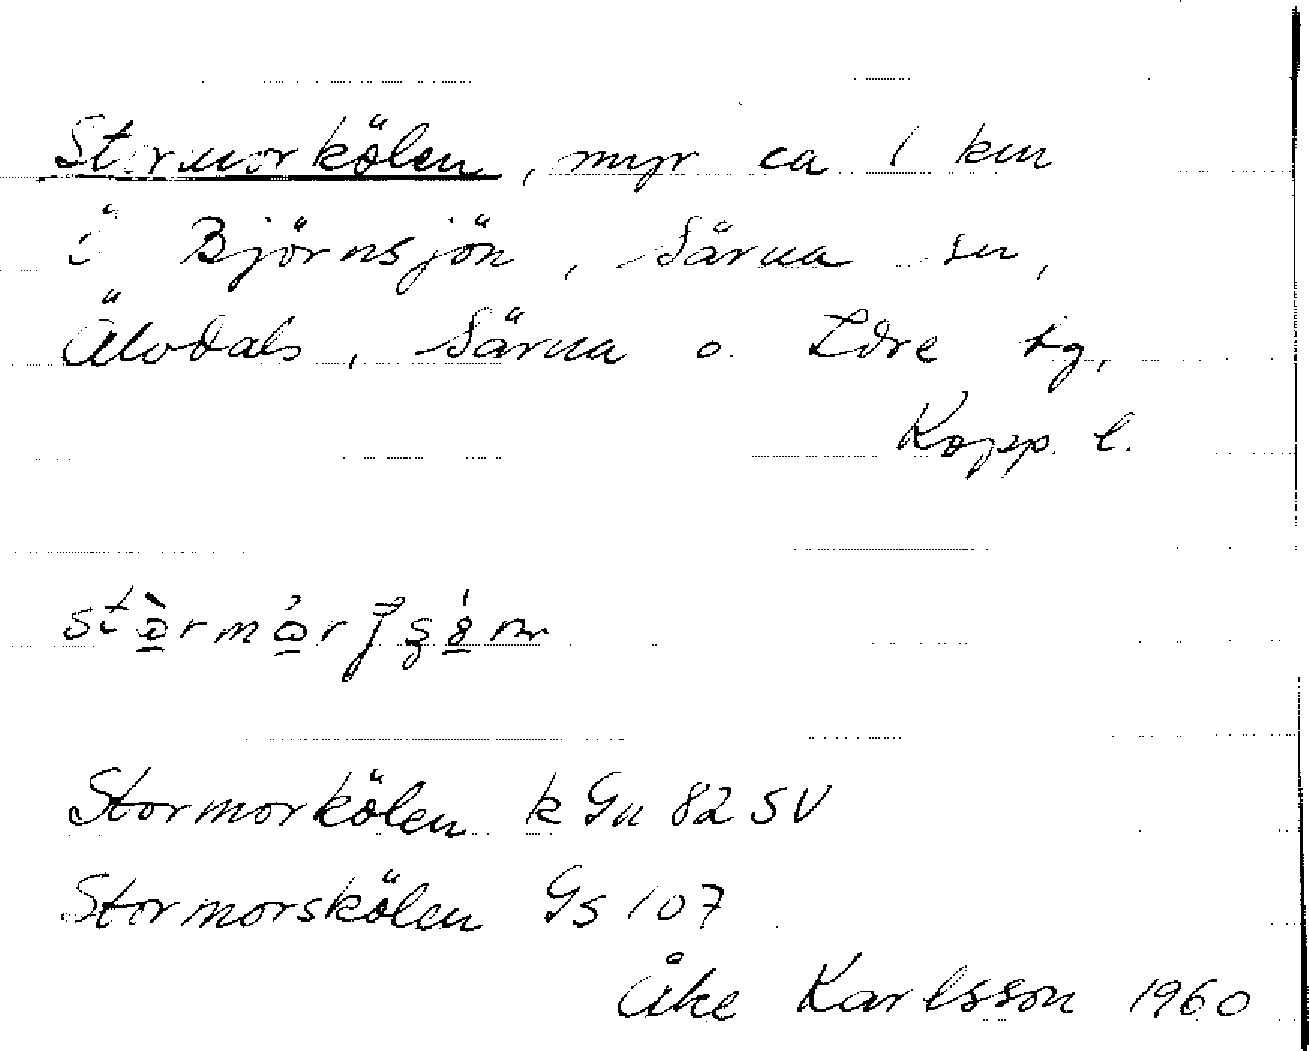 Stormorkölen, myr ca 1 km
Ö Björnsjön, Särna sn,
Älvdals, Särna o. Idre tg,
Kopp. l.
Stormorkölen k Gn 82 SV
Stormorskölen Gs 107
Åke Karlsson 1960